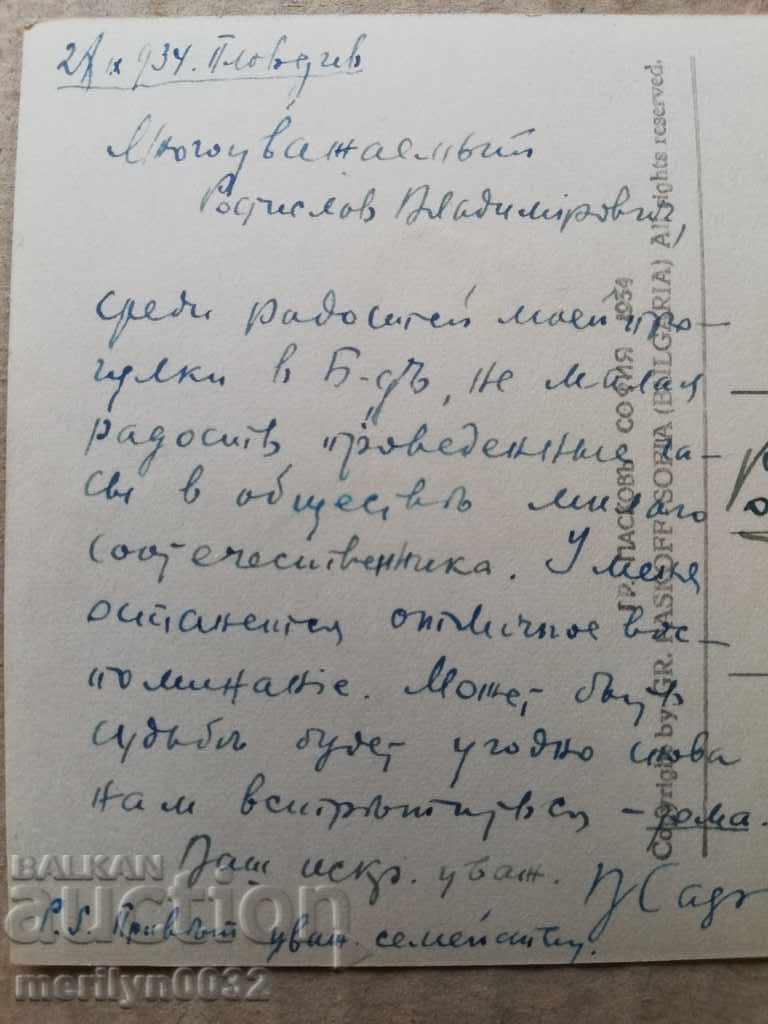 IX 934. Пловдив
Многоуважаемый
Ростислав Владимірович,
среди радостей моей про-
гулки в Б-дѣ, не малая
радость проведенные ча-
сы в обществѣ милого
соотечественника. У меня
останется отличное вос-
поминаніе. Может быть
судьбѣ будет угодно снова
нам встрѣтиться – дома.
Ваш искр. уваж.
P.S. Привѣт уваж. семейству.
ГР. ПАСКОВЪ СОФИЯ 1934
Copyright by GR. PASKOFF SOFIA (BULGARIA) All rights reserved.
BALKAN
auction
merilyn0032